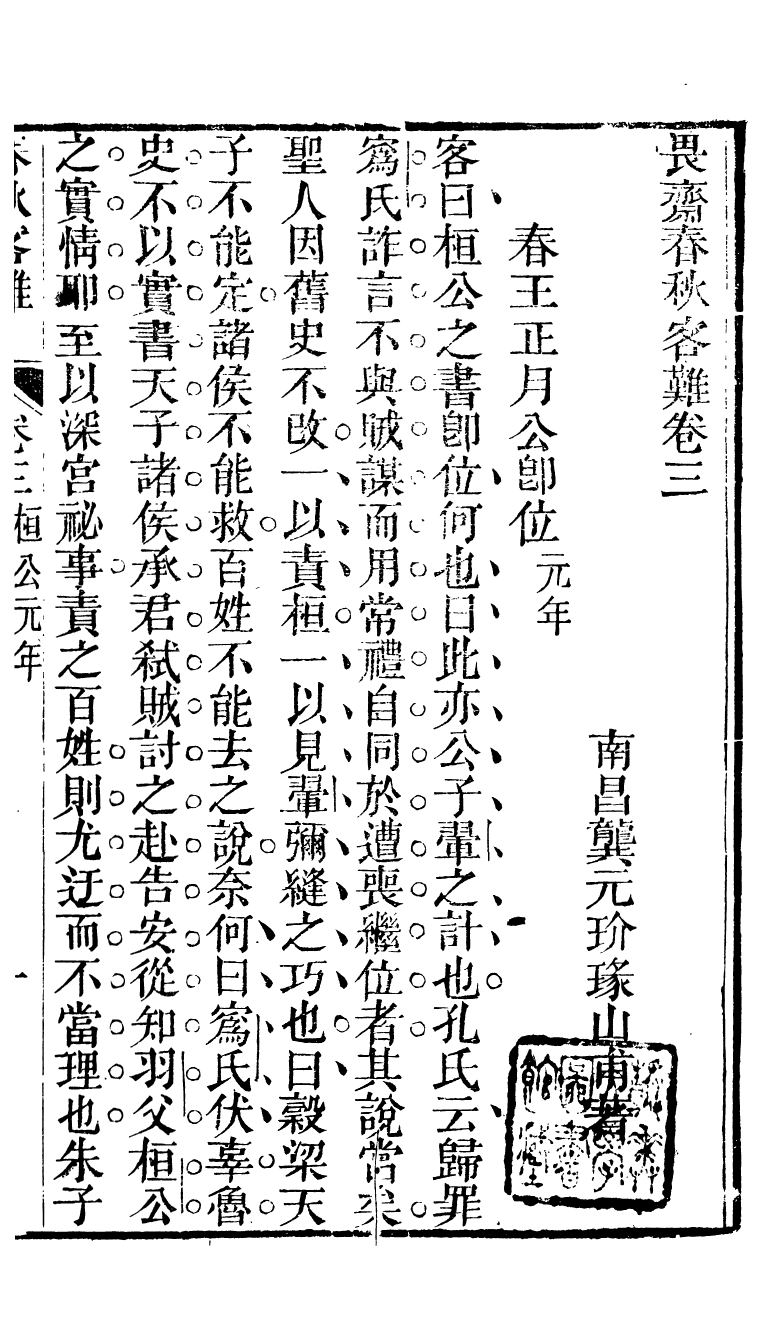 畏齋春秋客難卷三
南昌龔元玠瑑山甫著
春王正月公卽位元年
客曰桓公之書卽位何也曰此亦公子翬之計也孔氏云歸罪
寪氏詐言不與賊謀而用常禮自同於遭喪繼位者其說當矣
聖人因舊史不改一以責桓一以見翬彌縫之巧也曰穀梁天
子不能定諸侯不能救百姓不能去之說奈何曰寪氏伏辜魯
史不以實書天子諸侯承君弒賊討之赴告安從知羽父桓公
之實情耶至以深宮祕事責之百姓則尤迂而不當理也朱子
春秋客難 卷三桓公元年 一